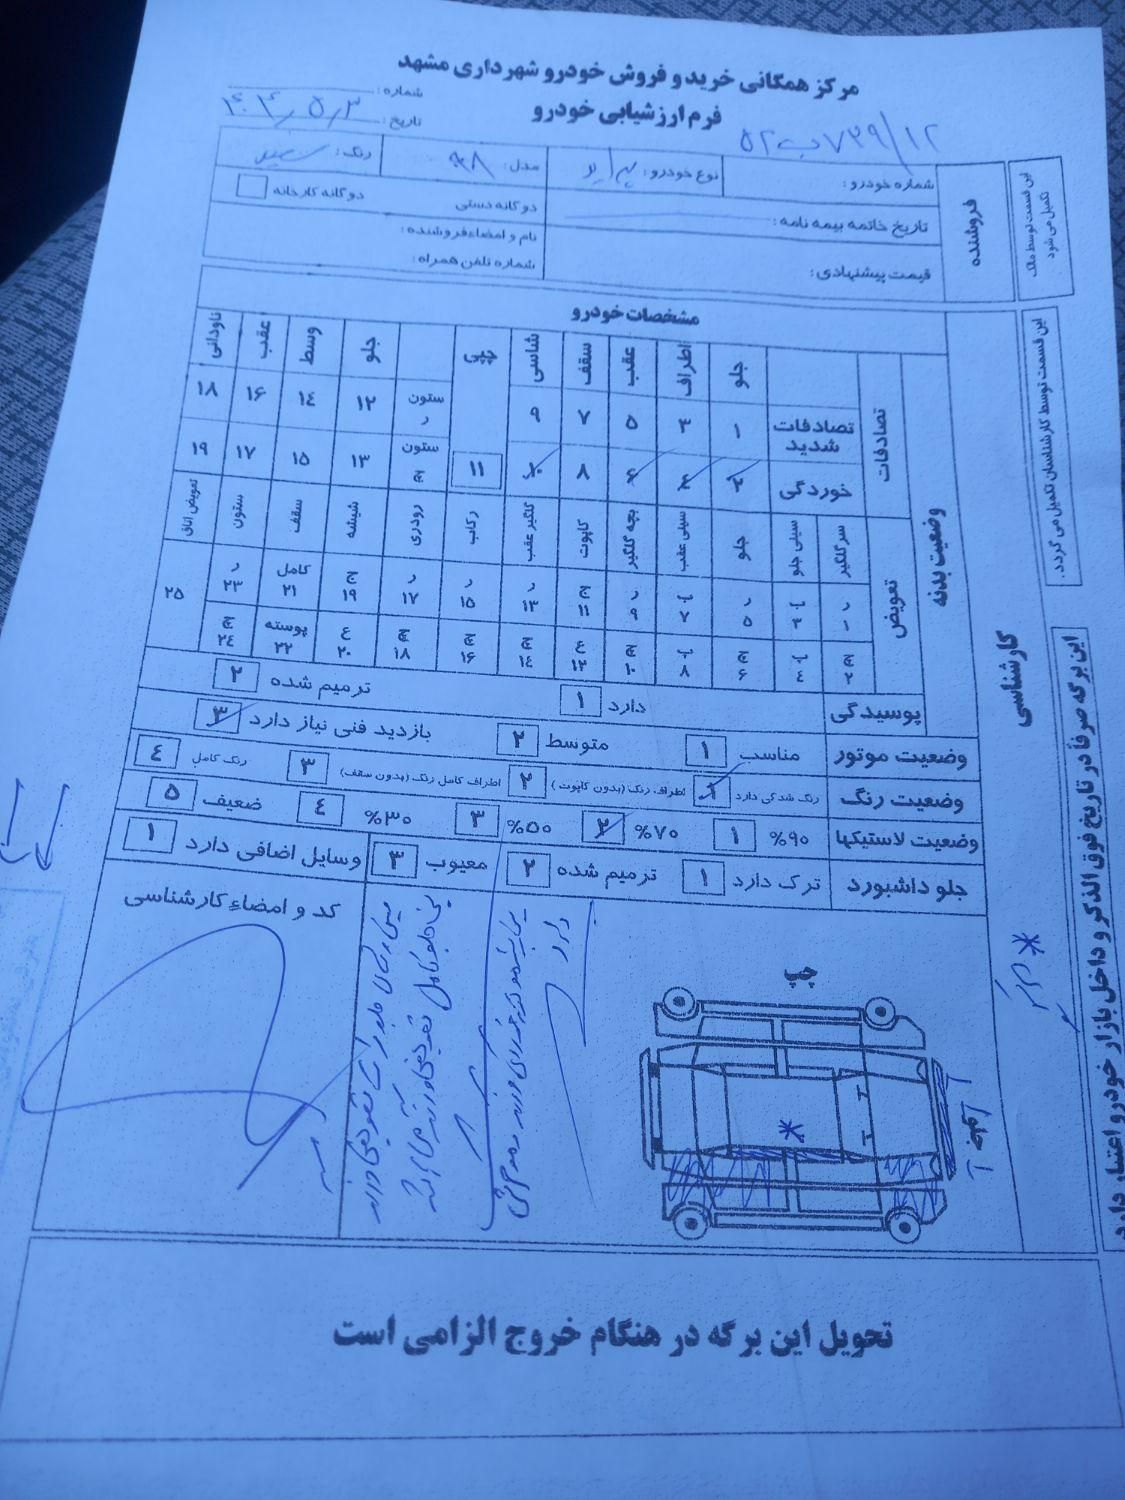 مرکز همگانی خرید و فروش خودرو شهرداری مشهد
فرم ارزشیابی خودرو
شماره:
تاریخ: ۱۴۰۴/۵/۳
۵۲ ب ۷۳۹/۱۲
این قسمت توسط مالک تکمیل می شود
فروشنده
شماره خودرو:
نوع خودرو: پراید
مدل: ۹۸
رنگ: سفید
تاریخ خاتمه بیمه نامه:
دوگانه دستی
دوگانه کارخانه
قیمت پیشنهادی:
نام و امضاء فروشنده:
شماره تلفن همراه:
این قسمت توسط کارشناسان تکمیل می گردد.
کارشناسی
مشخصات خودرو
وضعیت بدنه
تصادفات
جلو اطراف عقب سقف شاسی
جلو وسط عقب ناودانی
تصادفات شدید ۱ ۳ ۵ ۷ ۹
ستون ر ۱۲ ۱۴ ۱۶ ۱۸
خوردگی ۲ ۴ ۶ ۸ ۱۰ ۱۱
ستون چ ۱۳ ۱۵ ۱۷ ۱۹
تعویض
سر گلگیر سینی جلو جلو سینی عقب بچه گلگیر کاپوت گلگیر عقب رکاب رودری شیشه سقف ستون تعویض اتاق
ر ۱ ج ۳ ر ۵ ع ۷ ر ۹ ج ۱۱ ر ۱۳ ر ۱۵ ر ۱۷ ج ۱۹ کامل ۲۱ ر ۲۳ ۲۵
چ ۲ ع ۴ چ ۶ ع ۸ چ ۱۰ ع ۱۲ چ ۱۴ چ ۱۶ چ ۱۸ ع ۲۰ پوسته ۲۲ چ ۲۴
پوسیدگی دارد ۱ ترمیم شده ۲
وضعیت موتور مناسب ۱ متوسط ۲ بازدید فنی نیاز دارد ۳
وضعیت رنگ رنگ شدگی دارد ۱ اطراف رنگ (بدون کاپوت) ۲ اطراف کامل رنگ (بدون سقف) ۳ رنگ کامل ۴
وضعیت لاستیکها %۹۰ ۱ %۷۰ ۲ %۵۰ ۳ %۳۰ ۴ ضعیف ۵
جلو داشبورد ترک دارد ۱ ترمیم شده ۲ معیوب ۳ وسایل اضافی دارد ۱
کد و امضاء کارشناسی
چپ
دارد
این برگه صرفاً در تاریخ فوق الذکر و داخل بازار خودرو اعتبار دارد
تحویل این برگه در هنگام خروج الزامی است